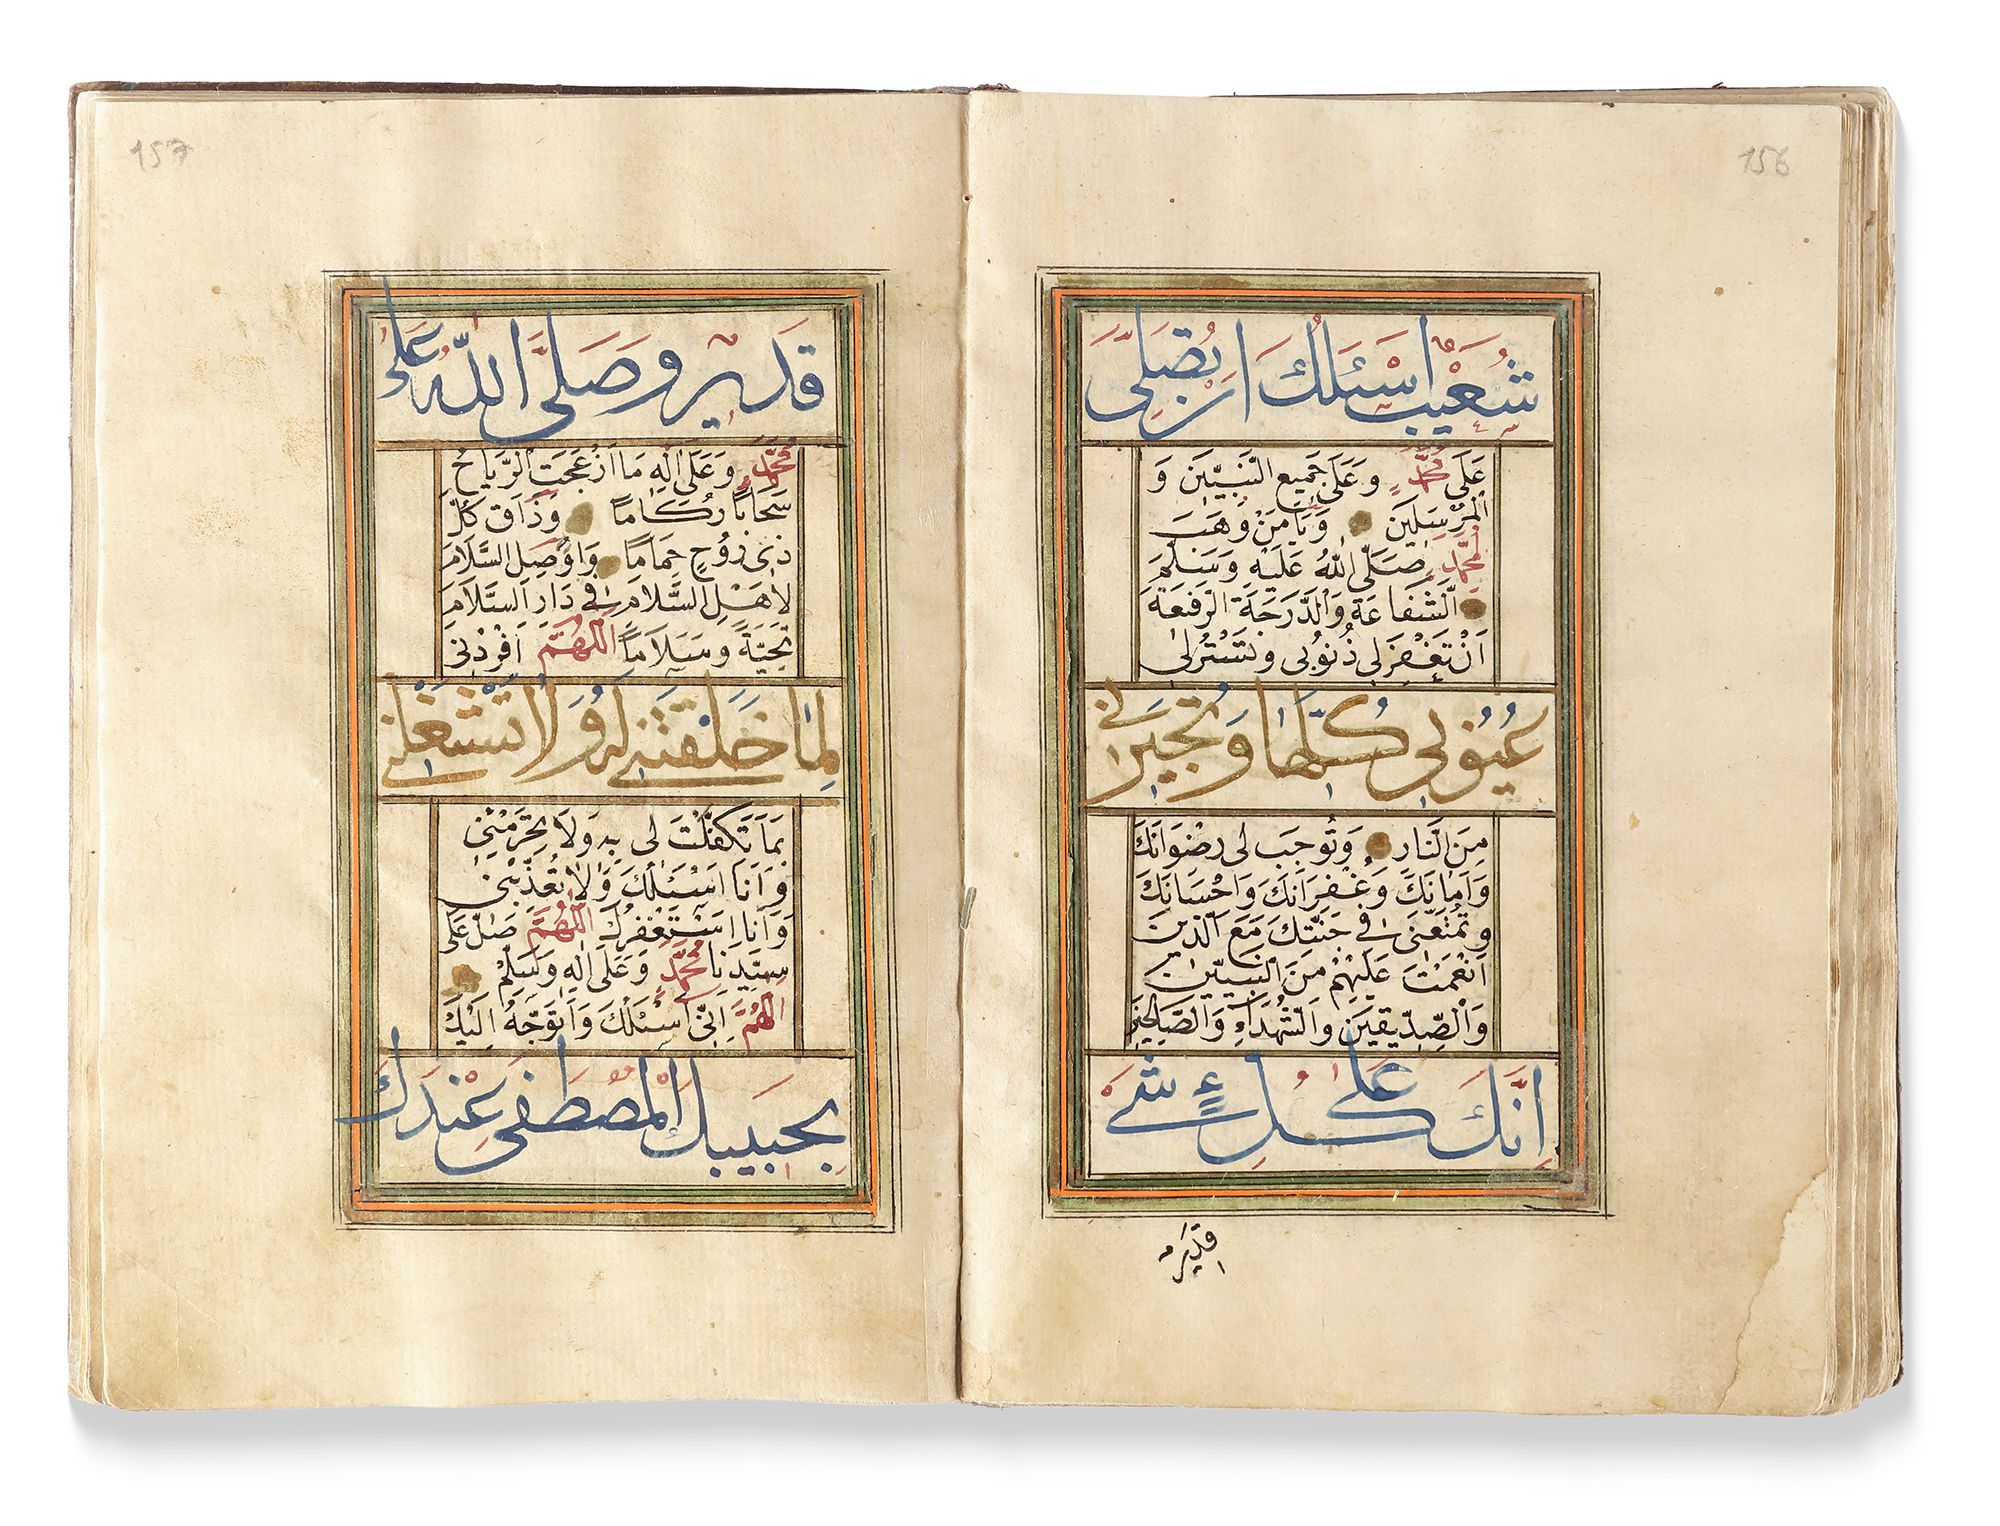 156
شُعَيْبٍ اَسْئَلُكَ اَنْ تُصَلِّىَ
عَلٰى مُحَمَّدٍ وَعَلٰى جَمِيعِ النَّبِيّٖنَ وَ
الْمُرْسَلِينَ وَيَا مَنْ وَهَبَ
لِمُحَمَّدٍ صَلَّى اللّٰهُ عَلَيْهِ وَسَلَّمَ
الشَّفَاعَةَ وَالدَّرَجَةَ الرَّفِيعَةَ
اَنْ تَغْفِرَلِى ذُنُوبِى وَتَسْتُرَلِى
عُيُوبِى كُلَّهَا وَتُجِيرَنِى
مِنَ النَّارِ وَتُوجِبَ لِى رِضْوَانَكَ
وَاَمَانَكَ وَغُفْرَانَكَ وَاِحْسَانَكَ
وَتُمَتِّعَنِى فِى جَنَّتِكَ مَعَ الَّذِينَ
اَنْعَمْتَ عَلَيْهِمْ مِنَ النَّبِيّٖنَ
وَالصِّدِّيقِينَ وَالشُّهَدَاءِ وَالصَّالِحِينَ
اِنَّكَ عَلٰى كُلِّ شَىْءٍ
قَدِيرٌ
157
قَدِيرٌ وَصَلَّى اللّٰهُ عَلٰى
مُحَمَّدٍ وَعَلٰى اٰلِهِ مَا اَزْعَجَتِ الرِّيَاحُ
سَحَابًا رُكَامًا وَذَاقَ كُلُّ
ذِى رُوحٍ حِمَامًا وَاَوْصِلِ السَّلَامَ
لِاَهْلِ السَّلَامِ فِى دَارِ السَّلَامِ
تَحِيَّةً وَسَلَامًا اَللّٰهُمَّ اَفْرِدْنِى
لِمَا خَلَقْتَنِى لَهُ وَلَا تَشْغَلْنِى
بِمَا تَكَفَّلْتَ لِى بِهِ وَلَا تَحْرِمْنِى
وَاَنَا اَسْئَلُكَ وَلَا تُعَذِّبْنِى
وَاَنَا اَسْتَغْفِرُكَ اَللّٰهُمَّ صَلِّ عَلٰى
سَيِّدِنَا مُحَمَّدٍ وَعَلٰى اٰلِهِ وَسَلِّمْ
اَللّٰهُمَّ اِنِّى اَسْئَلُكَ وَاَتَوَجَّهُ اِلَيْكَ
بِحَبِيبِكَ الْمُصْطَفٰى عِنْدَكَ